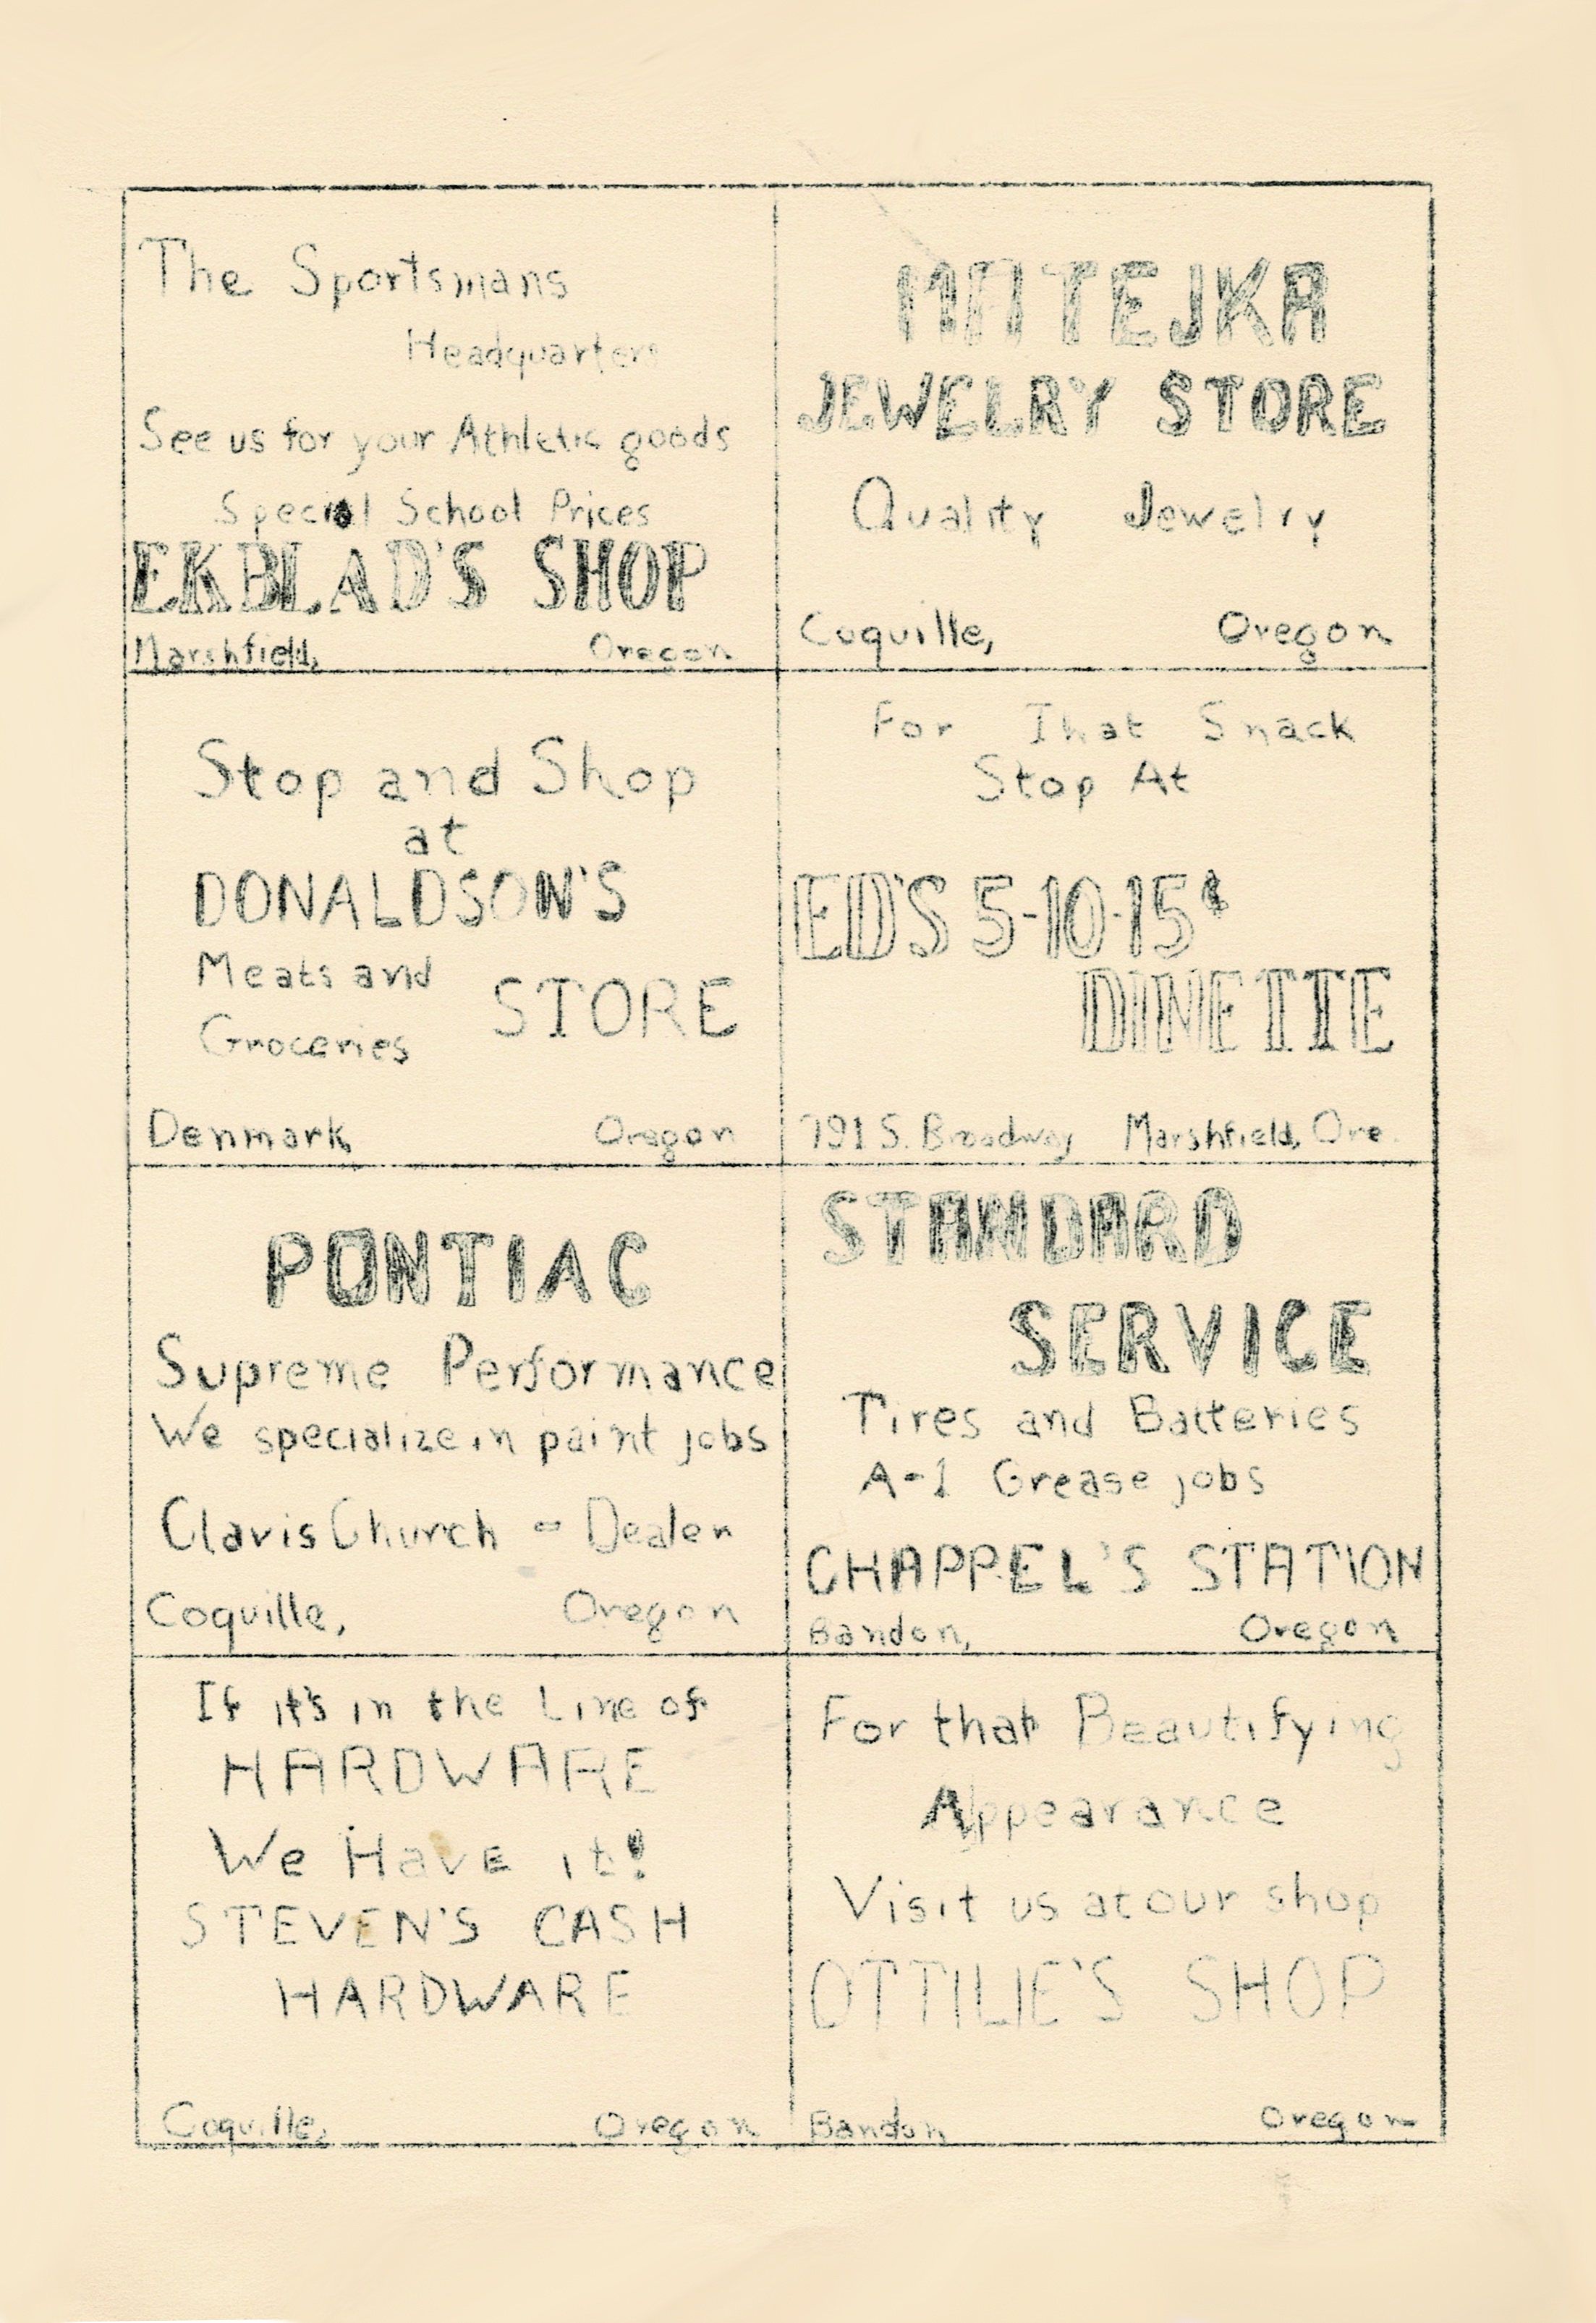 The Sportsmans
Headquarters
See us for your Athletic goods
Special School Prices
EKBLAD'S SHOP
Marshfield, Oregon
MATEJKA
JEWELRY STORE
Quality Jewelry
Coquille, Oregon
Stop and Shop
at
DONALDSON'S
Meats and
Groceries STORE
Denmark Oregon
For That Snack
Stop At
ED'S 5-10-15¢
DINETTE
791 S. Broadway Marshfield, Ore.
PONTIAC
Supreme Performance
We specialize in paint jobs
Clavis Church - Dealer
Coquille, Oregon
STANDARD
SERVICE
Tires and Batteries
A-1 Grease jobs
CHAPPEL'S STATION
Bandon, Oregon
If it's in the Line of
HARDWARE
We Have it!
STEVEN'S CASH
HARDWARE
Coquille, Oregon
For that Beautifying
Appearance
Visit us at our shop
OTTILIE'S SHOP
Bandon Oregon